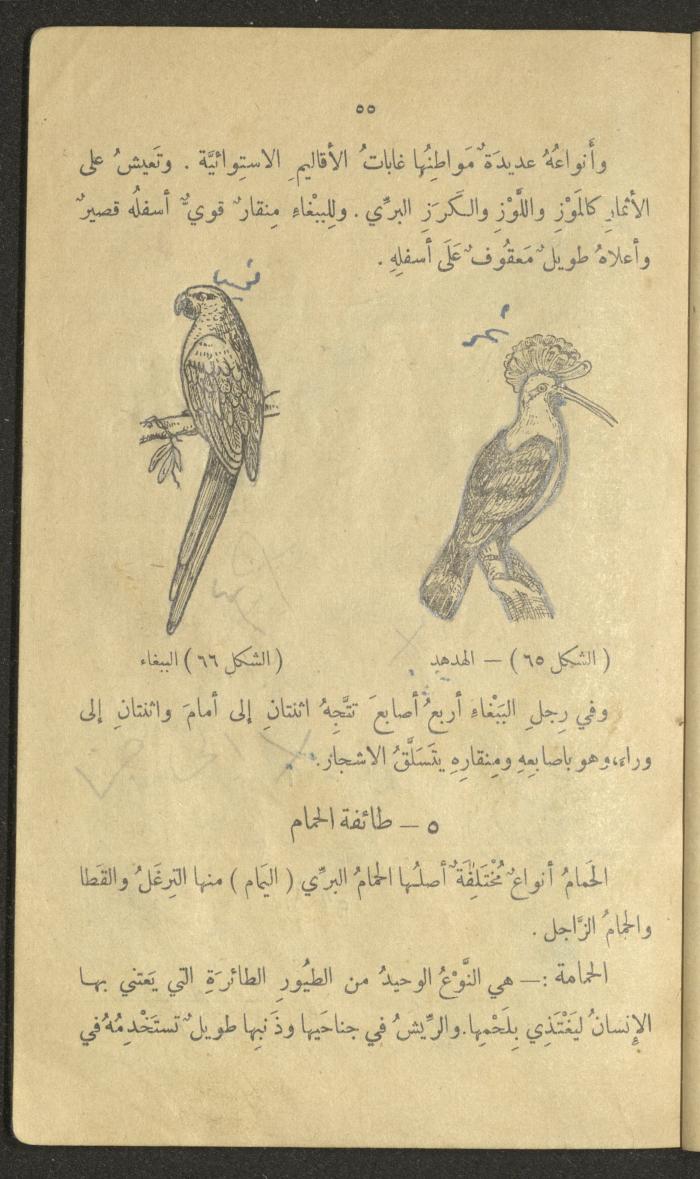 ٥٥
وأَنواعُهُ عديدَةٌ مَواطِنُها غاباتُ الأقاليمِ الاستِوائيَّة . وتَعيشُ على
الأثمارِ كالمَوْزِ واللَّوْزِ والكَرَزِ البرِّي . وللبِبْغاءِ مِنقارٌ قويٌّ أسفلُه قصيرٌ
وأعلاهُ طويلٌ مَعقُوفٌ عَلَى أسفلِهِ .
( الشكل ٦٥ ) — الهدهد
( الشكل ٦٦ ) الببغاء
وفي رِجلِ البَبْغاءِ أربعُ أصابعَ تتَّجِهُ اثنتانِ إلى أمامَ واثنتانِ إلى
وراء،وهو باصابعِهِ ومِنقارِهِ يتَسَلَّقُ الاشجار.
٥ — طائفة الحمام
الحَمامُ أنواعٌ مُخْتَلِفَةٌ أصلُها الحمامُ البرِّي ( اليَمام ) منها التِرغَلُ والقَطا
والحمامُ الزَّاجل .
الحمامة :— هي النَّوْعُ الوحيدُ من الطيُورِ الطائرَةِ التي يَعتني بها
الإِنسانُ ليَغْتَذِي بِلَحْمِها.والرِّيشُ في جناحَيها وذَنبِها طويلٌ تستَخْدِمُهُ في